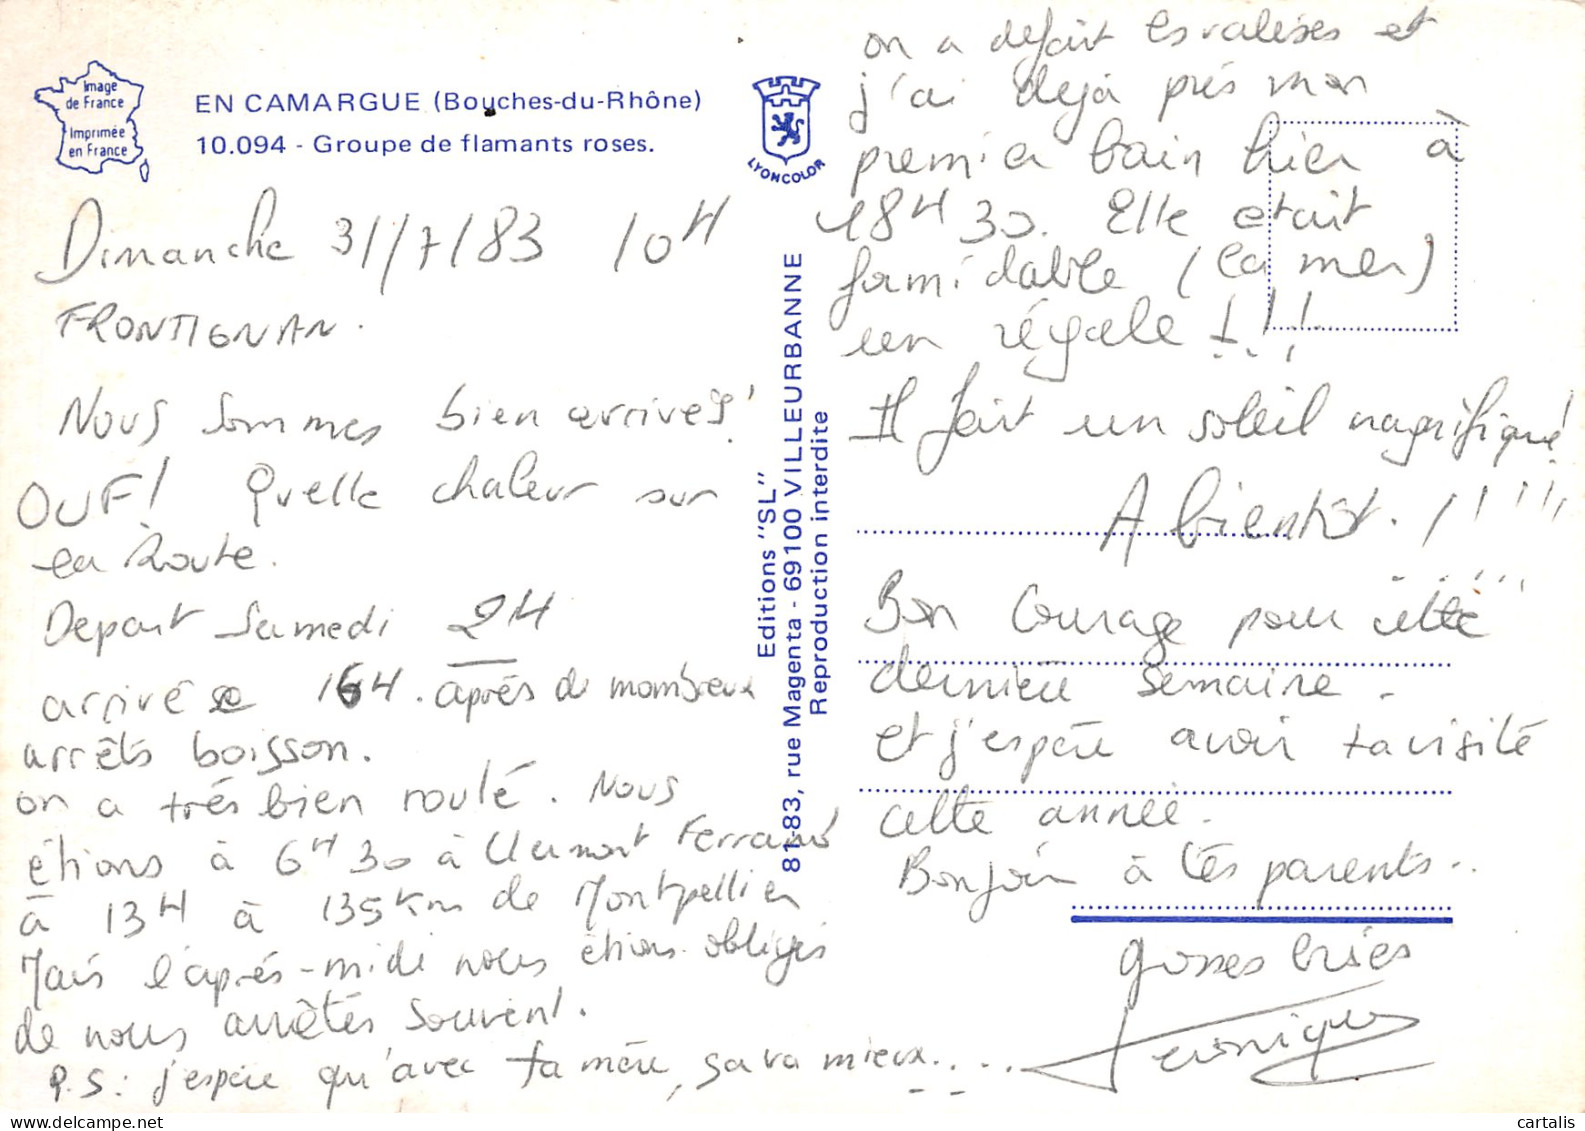 Image
de France
Imprimée
en France
EN CAMARGUE (Bouches-du-Rhône)
10.094 - Groupe de flamants roses.
LYONCOLOR
Dimanche 31/7/83 10H
FRONTIGNAN.
Nous sommes bien arrivés!
OUF! Quelle chaleur sur
la Route.
Depart Samedi 2H
arrivée 16H. après de nombreux
arrêts boisson.
on a très bien roulé. Nous
étions à 6H30 à Clermont Ferrand
à 13H à 135 Km de Montpellier
Mais l'après-midi nous étions obligés
de nous arrêtés souvent.
P.S: j'espère qu'avec ta mère, sa va mieux....
Editions "SL"
81-83, rue Magenta - 69100 VILLEURBANNE
Reproduction interdite
on a defait les valises et
j'ai dejà pris mon
premier bain hier à
18H30. Elle etait
formidable (la mer)
un régale !!!
Il fait un soleil magnifique!
A bientôt. !!!!!
Bon Courage pour cette
dernière semaine.
et j'espère avoir ta visite
cette année.
Bonjour à tes parents..
grosses bises
Veronique
cartalis